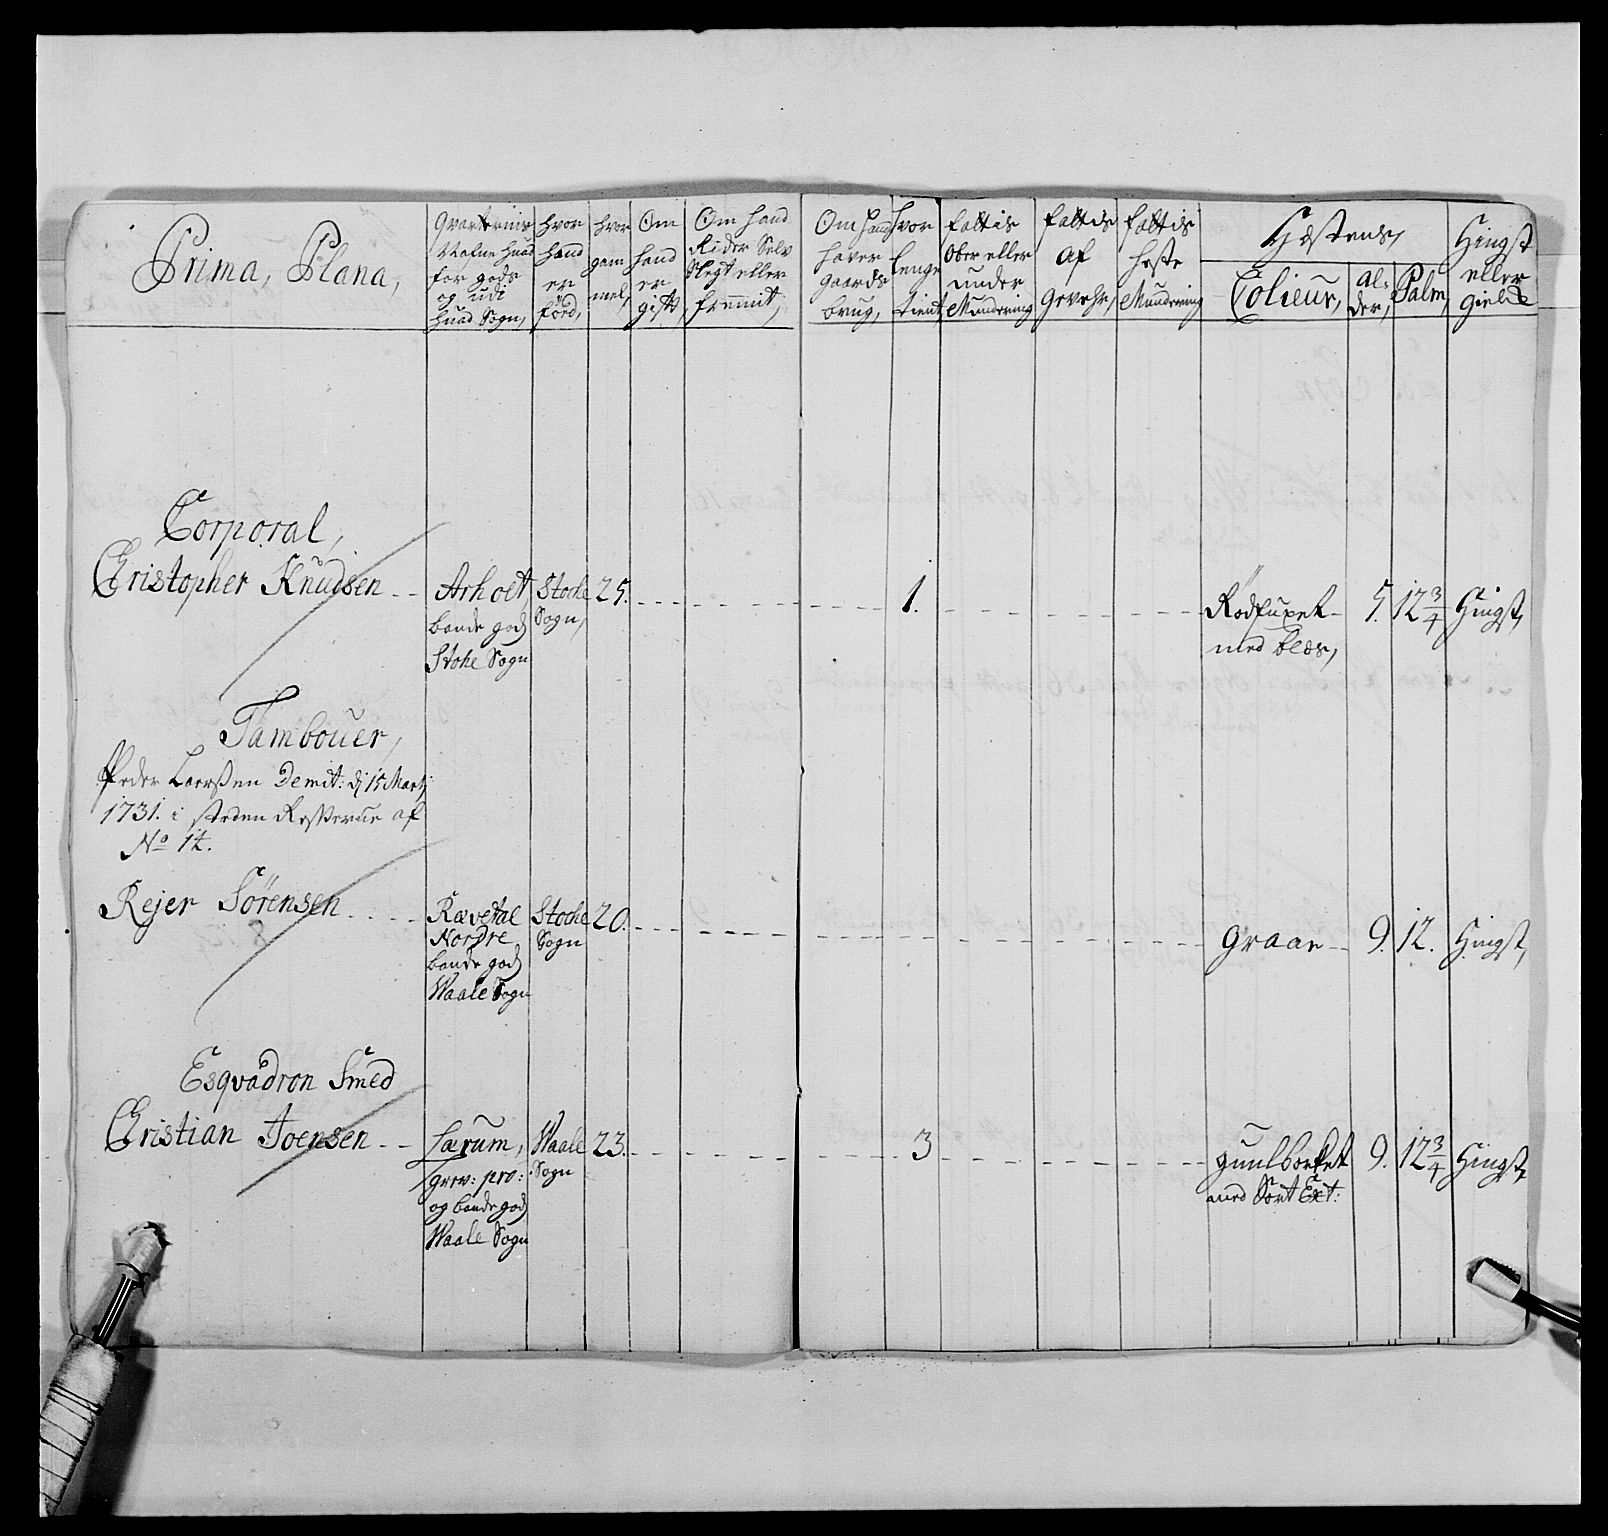 Prima, Plana,
Qvarterins
Nafne huad
for gods
og udi
huad Sogn,
hvor
hand
er
förd,
hvor
gam
mel,
Om
hand
er
gift
Om hand
Rider Selv
Slegt eller
fremit,
Om hand
haver
gaards
brug,
hvor
lenge
tient,
fattis
Ober eller
under
Mundering
fattis
af
gevehr,
fattis
heste
Mundering
Hæstens,
Colieur,
al-
der,
Palm,
Hingst
eller
gield
Corporal,
Christopher Knudsen
Arholt
bonde gods
Stoke Sogn
Stoche
Sogn,
25.
1.
Rödfuxet
med bles,
5.
12 3/4
Hingst,
Tambouer,
Peder Laerssen Demit: dj 15 Martj
1731. i steden
af
No 14.
Rejer Sörensen
Rævetal
Nordre
bonde gods
Waale Sogn
Stoche
Sogn
20.
graae
9.
12.
Hingst,
Esqvadron Smed
Christian Joensen
Særum,
grev: pro:
og bonde gods
Waale Sogn
Waale
Sogn
23.
3
guulborket
med Sort Ext:
9.
12 3/4
Hingst,